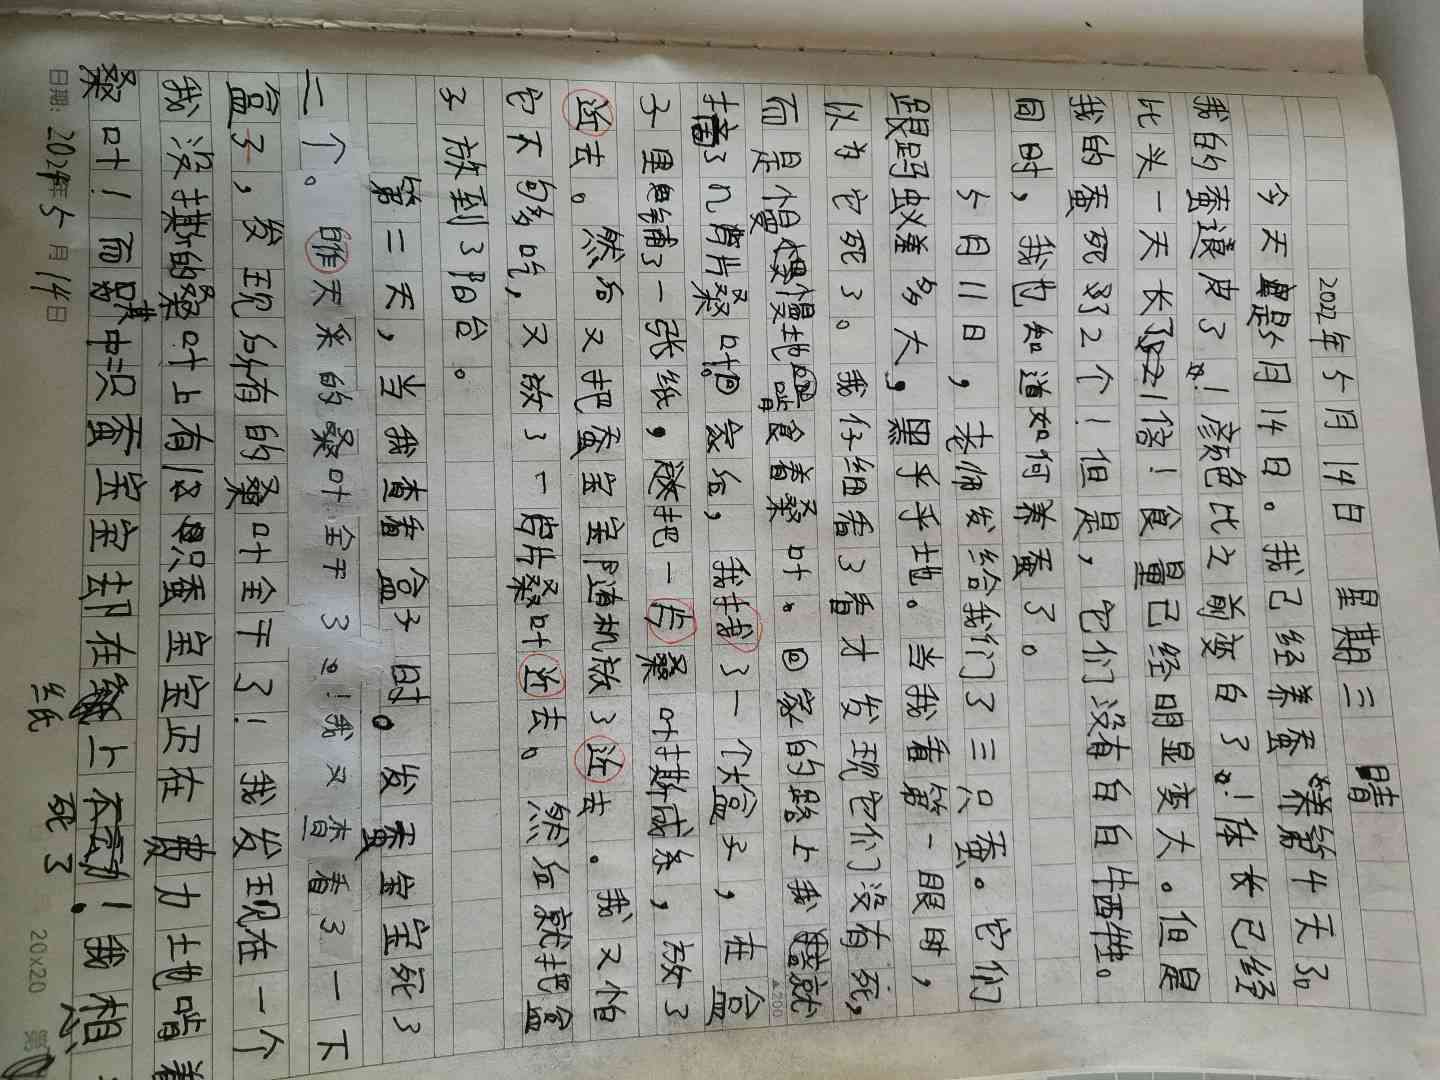 2022年5月14日 星期三 晴
今天是5月14日。我已经养蚕第4天了。
我的蚕退皮了！颜色比之前变白了！体长已经
比头一天长了2倍！食量已经明显变大。但是
我的蚕死了2个！但是，它们没有白白牺牲。
同时，我也知道如何养蚕了。
5月11日，老师发给我们了三只蚕。它们
跟蚂蚁差多大，黑乎乎地。当我看第一眼时，
以为它死了。我仔细看了看才发现它们没有死，
而是慢慢地啃食着桑叶。回家的路上我就
摘了几片桑叶。回家后，我找了一个大盒子，在盒
子里铺了一张纸，把一片桑叶撕成条，放了
近去。然后又把蚕宝宝随机放了近去。我又怕
它不够吃，又放了一片桑叶近去。然后就把盒
子放到了阳台。
第二天，当我查看盒子时。发蚕宝宝死了
二个。昨天采的桑叶全干了！我又查看了一下
盒子，发现所有的桑叶全干了！我发现在一个
我没撕的桑叶上有1只蚕宝宝正在费力地啃着
桑叶！而其中只蚕宝宝却在纸上死了！我想
日期：2024年5月14日
20×20
▲200